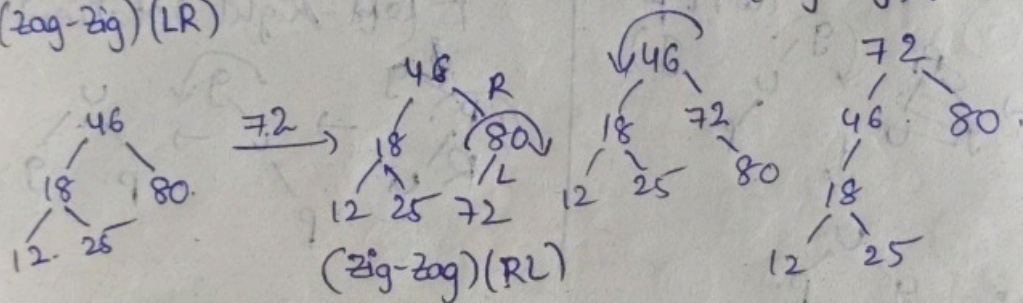 (Zag-Zig)(LR)
46
18 80
12 25
72
46
R
18 80
L
12 25 72
(Zig-Zag)(RL)
46
18 72
12 25 80
72
46 80
18
12 25